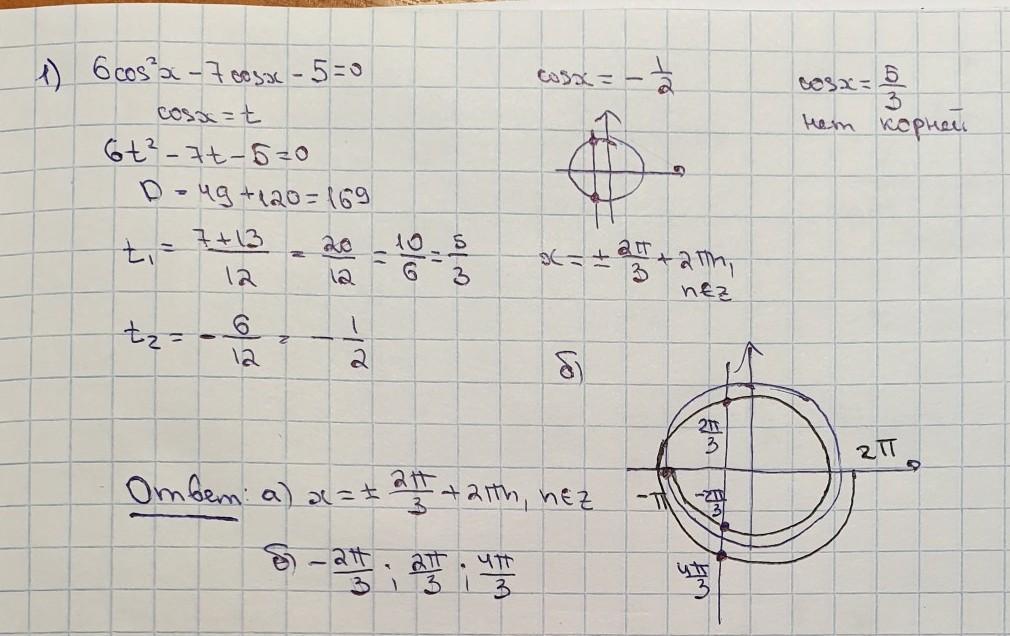 1) 6cos²x - 7cosx - 5 = 0
cosx = t
6t² - 7t - 5 = 0
D = 49 + 120 = 169
t₁ = \frac{7+13}{12} = \frac{20}{12} = \frac{10}{6} = \frac{5}{3}
t₂ = -\frac{6}{12} = -\frac{1}{2}
cosx = -\frac{1}{2}
x = ± \frac{2π}{3} + 2πn,
n∈z
cosx = \frac{5}{3}
нет корней
б)
\frac{2π}{3}
2π
-π
-\frac{2π}{3}
\frac{4π}{3}
Ответ: а) x = ± \frac{2π}{3} + 2πn, n∈z
б) -\frac{2π}{3} ; \frac{2π}{3} ; \frac{4π}{3}